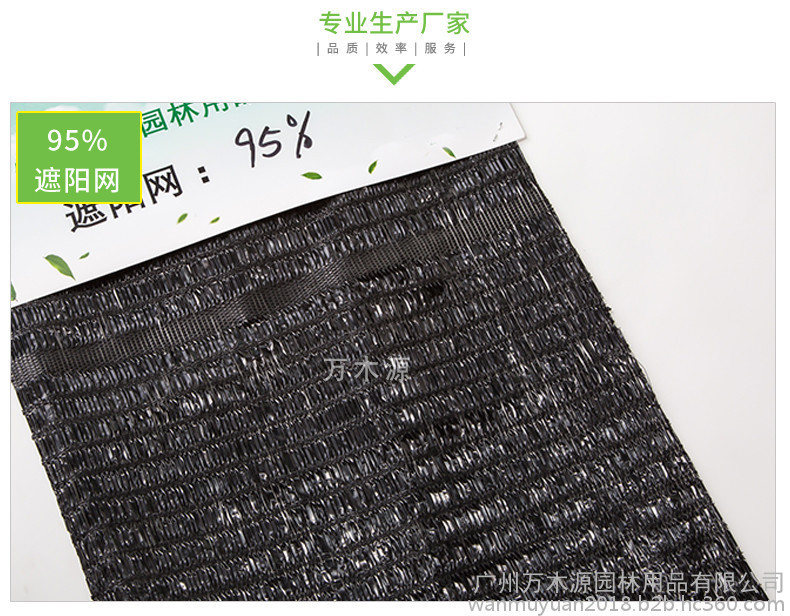 专业生产厂家
| 品 质 | 效 率 | 服 务 |
95%
遮阳网
园林用
遮阳网：95%
万木源
广州万木源园林用品有限公司
wanmuyuan2018.b2b.hc360.com